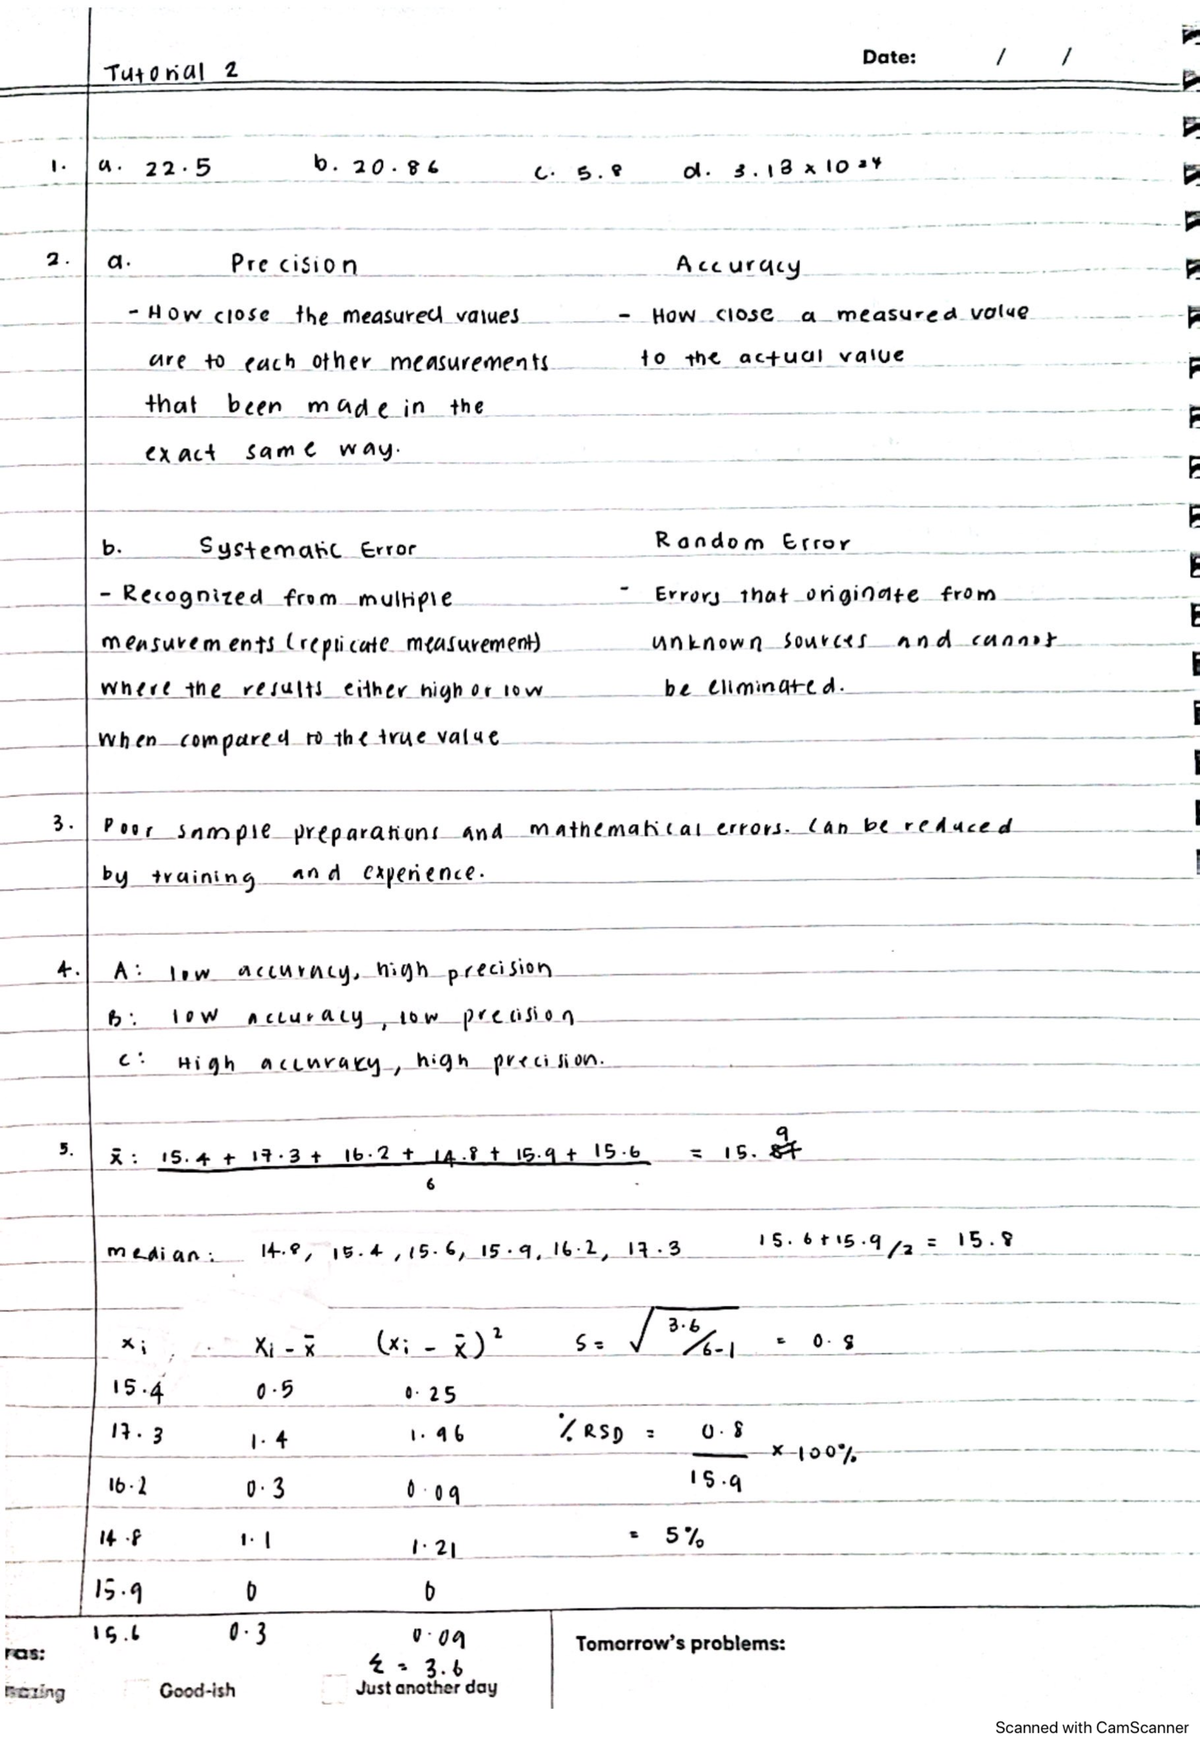 Date: / /
Tutorial 2
1. a. 22.5 b. 20.86 c. 5.8 d. 3.13 x 10 24
2. a. Precision Accuracy
- How close the measured values - How close a measured value
are to each other measurements to the actual value
that been made in the
exact same way.
b. Systematic Error Random Error
- Recognized from multiple - Errors that originate from
measurements (replicate measurement) unknown sources and cannot
where the results either high or low be eliminated.
when compared to the true value
3. Poor sample preparations and mathematical errors. Can be reduced
by training and experience.
4. A: low accuracy, high precision
B: low accuracy, low precision
C: High accuracy, high precision.
5. x̄: 15.4 + 17.3 + 16.2 + 14.8 + 15.9 + 15.6 = 15.9
6
median: 14.8, 15.4, 15.6, 15.9, 16.2, 17.3 15.6+15.9/2 = 15.8
xi xi - x̄ (xi - x̄)² s = √3.6/6-1 = 0.8
15.4 0.5 0.25
17.3 1.4 1.96 % RSD = 0.8 x 100%
16.2 0.3 0.09 15.9
14.8 1.1 1.21 = 5%
15.9 0 0
15.6 0.3 0.09 Tomorrow's problems:
ras:
Σ = 3.6
Good-ish Just another day
Scanned with CamScanner